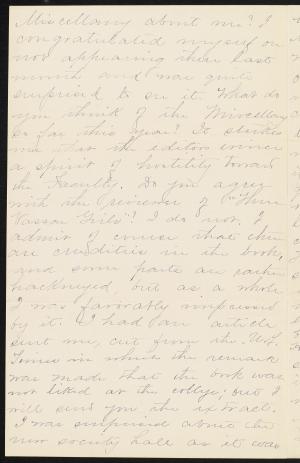 Miscellany about me? I
congratulated myself on
not appearing there last
month and was quite
surprised to see it. What do
you think of the Miscellany
so far this year? It strikes
me that the editors evince
a spirit of hostility toward
the Faculty. Do you agree
with the reviewer of "Three
Vassar Girls"? I do not. I
admit of course that there
are crudities in the book,
and some parts are rather
hackneyed, but as a whole
I was favorably impressed
by it. I had an article
sent me, cut from the
Times in which the remark
was made that the book was
not liked at the college; but I
will send you the extract.
I was surprised about the
new society hall as it was